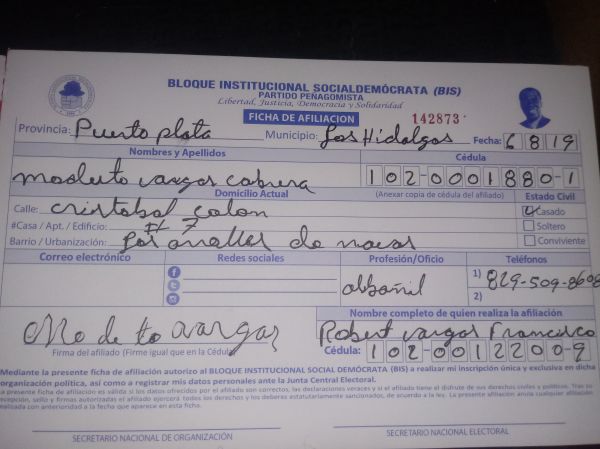 BLOQUE INSTITUCIONAL SOCIALDEMÓCRATA (BIS)
PARTIDO PEÑAGOMISTA
Libertad, Justicia, Democracia y Solidaridad
FICHA DE AFILIACION 142873
Provincia: Puerto plata Municipio: Los Hidalgos Fecha: 6 8 19
Nombres y Apellidos Cédula
modesto vargas cabrera 102-0001880-1
Domicilio Actual (Anexar copia de cédula del afiliado) Estado Civil
Calle: cristobal colon Casado
#Casa / Apt. / Edificio: # 7 Soltero
Barrio / Urbanización: de Conviviente
Correo electrónico Redes sociales Profesión/Oficio Teléfonos
albañil 1) 829-509-8608
2)
Modesto vargas Nombre completo de quien realiza la afiliación
Robert vargas Francisco
Firma del afiliado (Firme igual que en la Cédula) Cédula: 102-0012200-9
Mediante la presente ficha de afiliación autorizo al BLOQUE INSTITUCIONAL SOCIAL DEMÓCRATA (BIS) a realizar mi inscripción única y exclusiva en dicha
organización política, así como a registrar mis datos personales ante la Junta Central Electoral.
La presente ficha de afiliación es válida si los datos ofrecidos por el afiliado son correctos, las declaraciones veraces y si el afiliado tiene el disfrute de sus derechos civiles y políticos. Tras su
recepción, sello y firmas autorizadas el afiliado ejercerá todos los derechos y los deberes estatutariamente sancionados, de acuerdo a la ley. La presente afiliación anula cualquier afiliación
realizada con anterioridad a la fecha que aparece en esta ficha.
SECRETARIO NACIONAL DE ORGANIZACIÓN SECRETARIO NACIONAL ELECTORAL